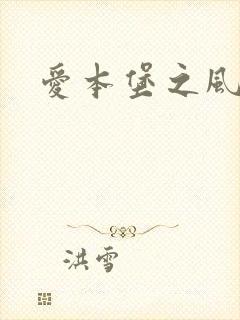 愛本堡之風
洪雪